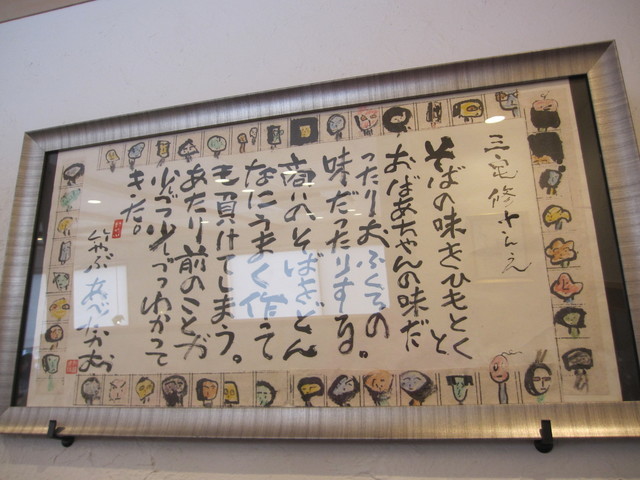 三宅修さんえ
そばの味をひもとくと
おばあちゃんの味だ
ったりおふくろの。
味だったりする
そばをどん
なにうまく作って
も負けてしまう。
あたり前のことが
少しづつ少しづつわかって
きた。